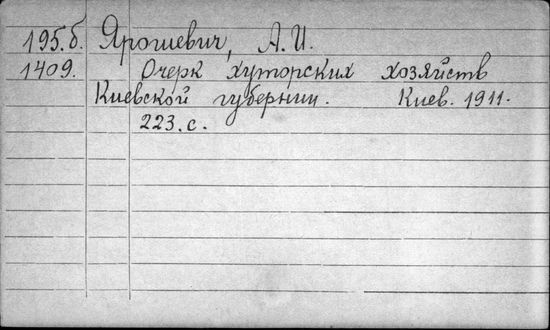 195.б. Ярошевич, А.И.
1409. Очерк хуторских хозяйств
Киевской губернии. Киев. 1911.
223.с.